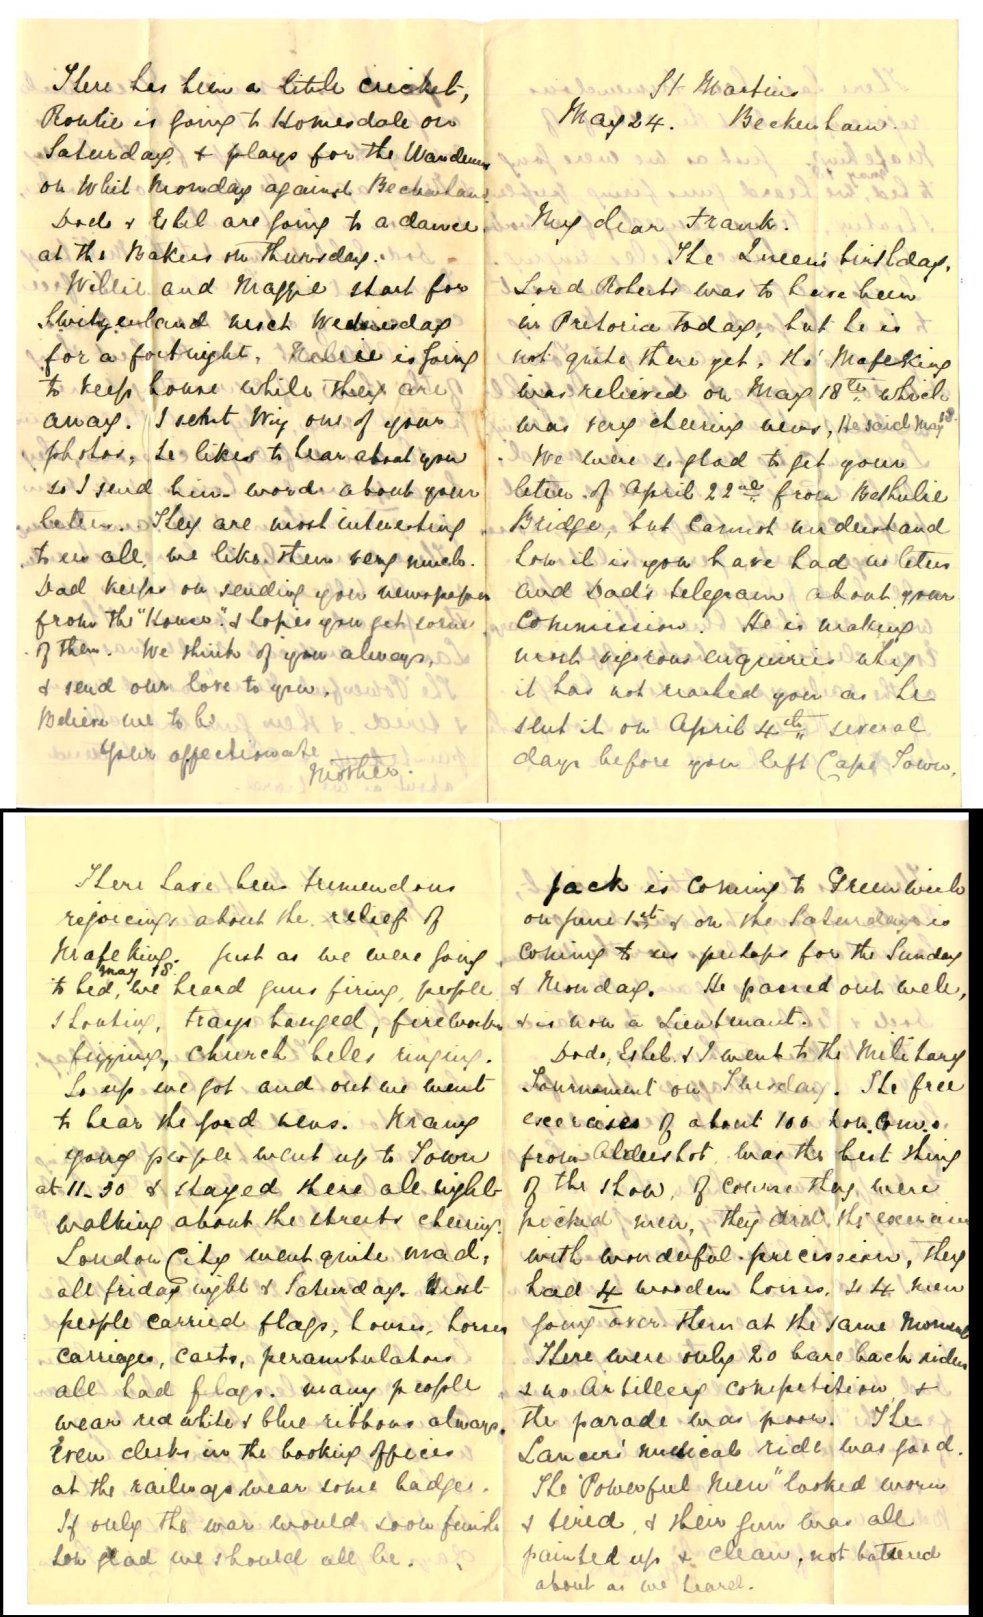 St Martins
May 24. Beckenham.
My dear Frank.
The Queen's birthday.
Lord Roberts was to have been
in Pretoria today, but he is
not quite there yet. Tho' Mafeking
was relieved on May 18th which
was very cheering news, He said May 18.
We were so glad to get your
letter of April 22nd from Bethulie
Bridge, but cannot understand
how it is you have had no letters
and Dad's telegram about your
Commission. He is making
most vigorous enquiries why
it has not reached you as he
sent it on April 4th several
days before you left Cape Town.
There have been tremendous
rejoicings about the relief of
Mafeking. Just as we were going
to bed, May 18 we heard guns firing, people
shouting, trays banged, fireworks
fizzing, church bells ringing.
So up we got and out we went
to hear the good news. Many
young people went up to Town
at 11-30 & stayed there all night
walking about the streets cheering.
London City went quite mad,
all friday night & Saturday. Most
people carried flags, houses, horses
carriages, carts, perambulators
all had flags. many people
wear red white & blue ribbons always.
Even clerks in the booking offices
at the railways wear some badge.
If only the war would soon finish
how glad we should all be.
Jack is coming to Greenwich
on June 1st & on the Saturday is
coming to us perhaps for the Sunday
& Monday. He passed out well,
& is now a Lieutenant.
Dods, Ethel & I went to the Military
Tournament on Tuesday. The free
exercises of about 100 non. Com. o
from Aldershot was the best thing
of the show, of course they were
picked men, they did the exercises
with wonderful precission, they
had 4 wooden horses, & 4 men
going over them at the same moment
There were only 20 bare back riders
& no Artillery competition &
the parade was poor. The
Lancers' musical ride was good.
The "Powerful Men" looked worn
& tired, & their gun was all
painted up & clean, not battered
about as we heard.
There has been a little cricket,
Rowlie is going to Homesdale on
Saturday & plays for the Wanderers
on Whit Monday against Beckenham.
Dods & Ethel are going to a dance
at the Bakers on Thursday.
Willie and Maggie start for
Switzerland next Wednesday
for a fortnight. Nellie is going
to keep house while they are
away. I sent Wig one of your
photos, he likes to hear about you
so I send him word about your
letters. They are most interesting
to us all, we like them very much.
Dad keeps on sending you newspapers
from the "House" & hopes you get some
of them. We think of you always,
& send our love to you.
Believe me to be
Your affectionate
Mother.